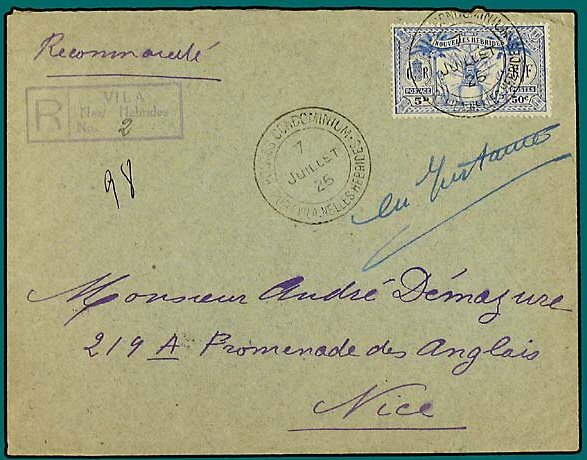 Recommandé
NOUVELLES HEBRIDES
R F
POSTAGE POSTES
5d 50c
CONDOMINIUM
JUILLET
25
R
VILA
New Hebrides
No. 2
98
CONDOMINIUM
7
JUILLET
25
PORT-VILA, NELLES HEBRIDES
en Instance
Monsieur André Démazure
219 A Promenade des Anglais
Nice